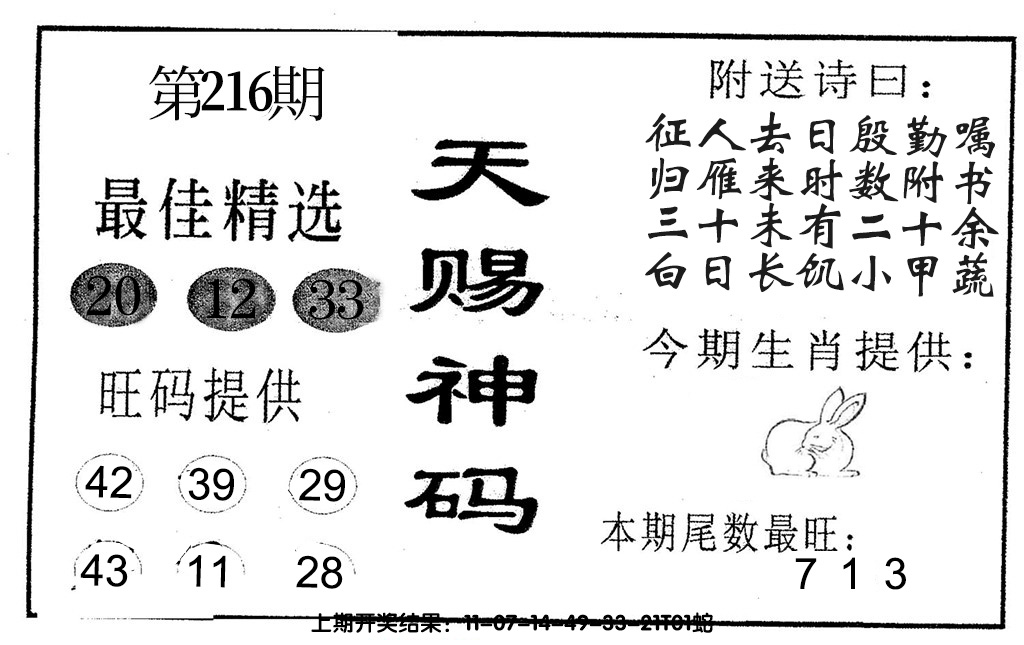 第216期
最佳精选
20 12 33
旺码提供
42 39 29
43 11 28
天赐神码
附送诗曰：
征人去日殷勤嘱
归雁来时数附书
三十未有二十余
白日长饥小甲蔬
今期生肖提供：
本期尾数最旺：
7 1 3
上期开奖结果：11-07-14-49-33-21T01蛇